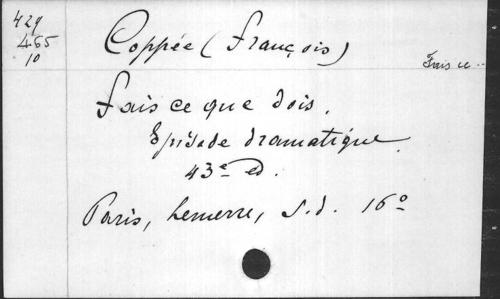 429
465
10
Coppée (François)
Fais ce
Fais ce que dois.
Episode dramatique.
43e ed.
Paris, Lemerre, s.d. 16º